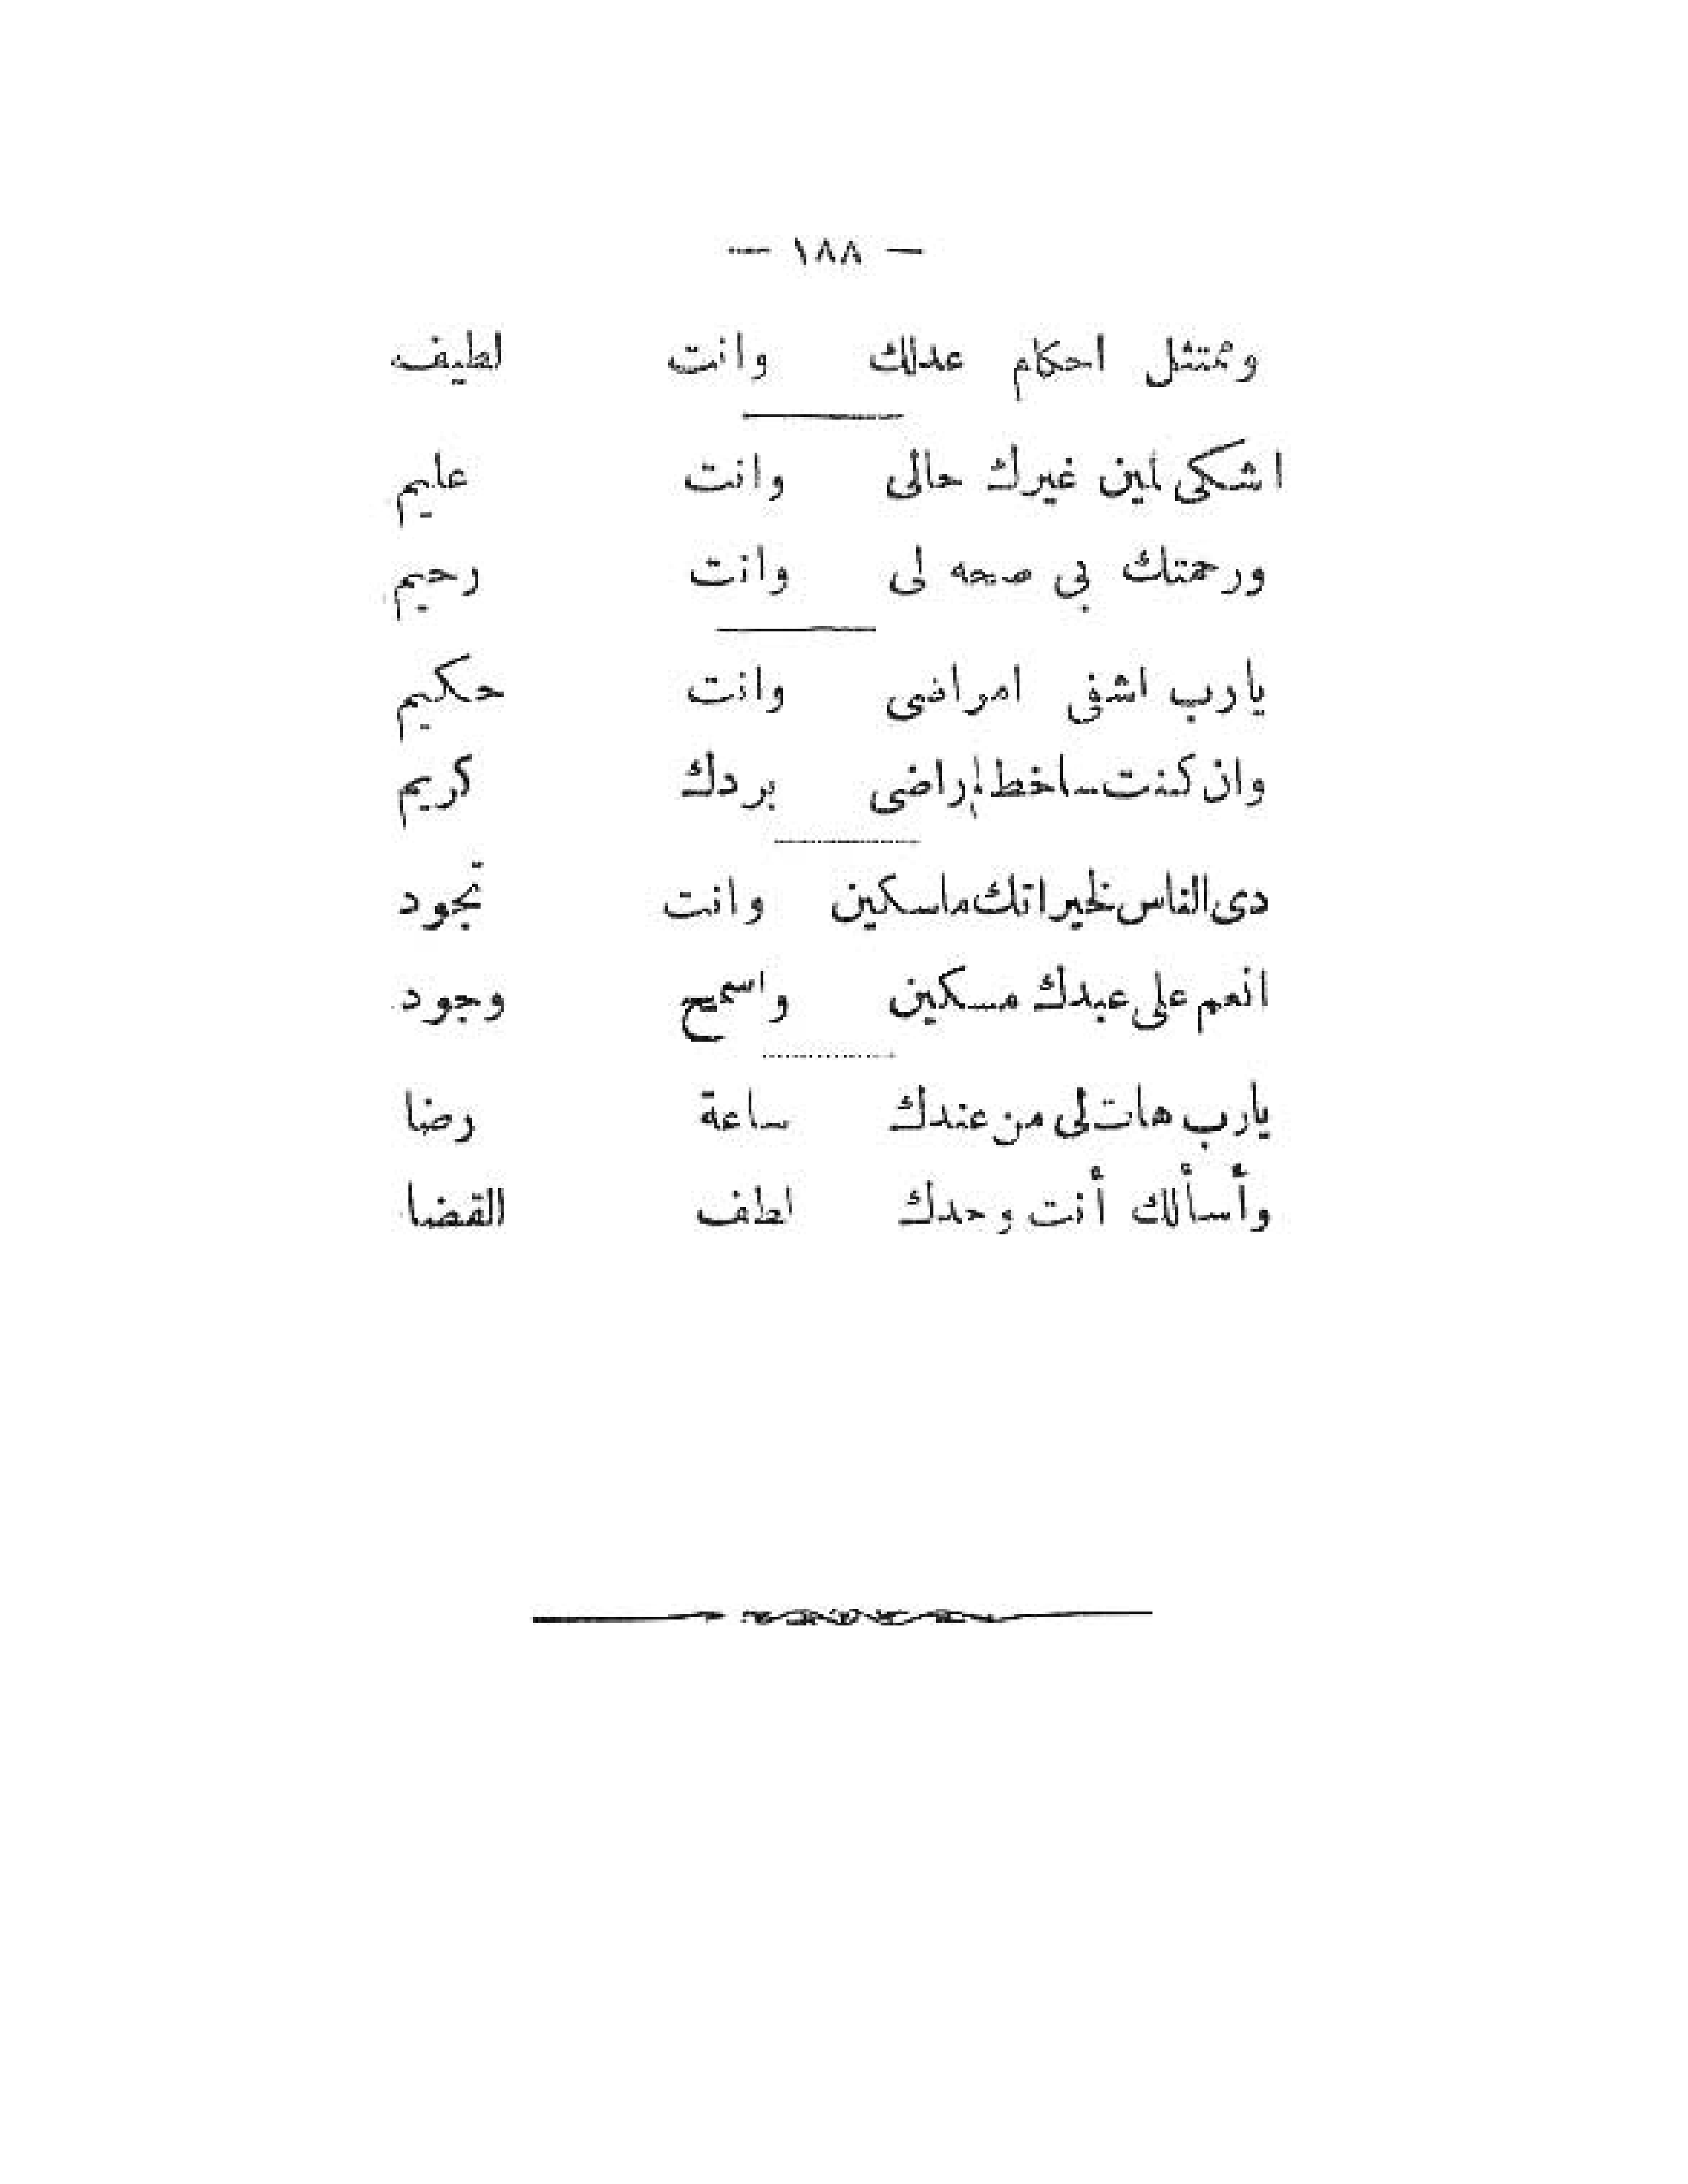 — ١٨٨ —
وممتثل احكام عدلك وانت لطيف
اشكى لمين غيرك حالى وانت عليم
ورحمتك بى صحه لى وانت رحيم
يارب اشفى امراضى وانت حكيم
وان كنت ساخط راضى بردك كريم
دى الناس لخيراتك ماسكين وانت تجود
انعم على عبدك مسكين واسمح وجود
يارب هات لى من عندك ساعة رضا
وأسألك أنت وحدك لطف القضا